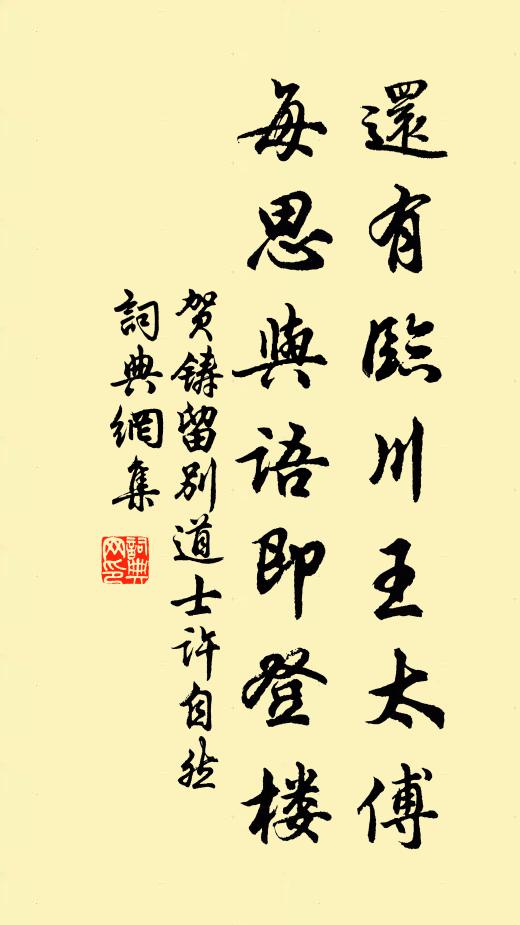 還有臨川王太傅
每思與語即登楼
贺鑄留别道士许自然
詞典網集
詞典网印